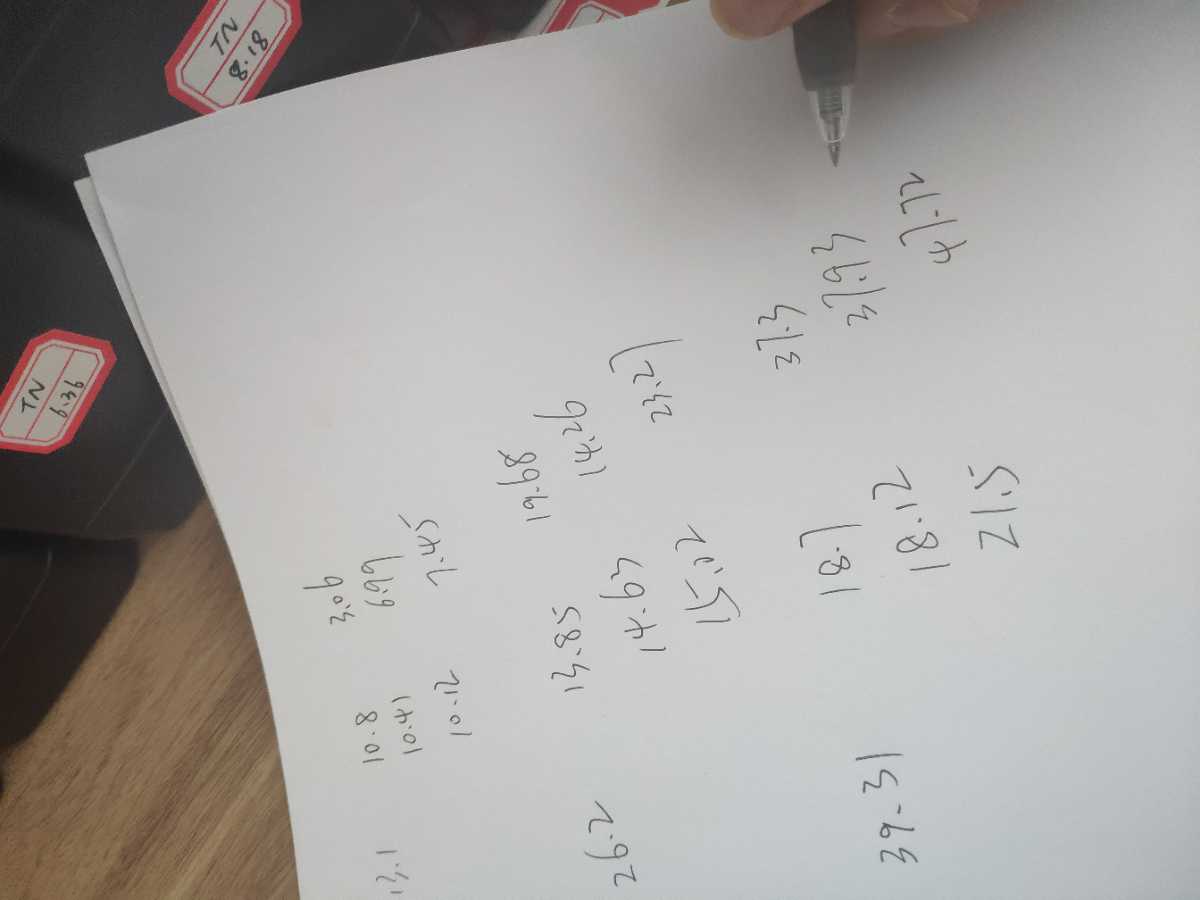 TN
6.36
TN
8.18
13.1
10.8
10.41
10.12
3.06
6.99
7.45
26.2
13.85
14.63
15.02
19.68
14.26
23.27
39.31
18.7
18.12
21.5
37.3
37.93
41.72